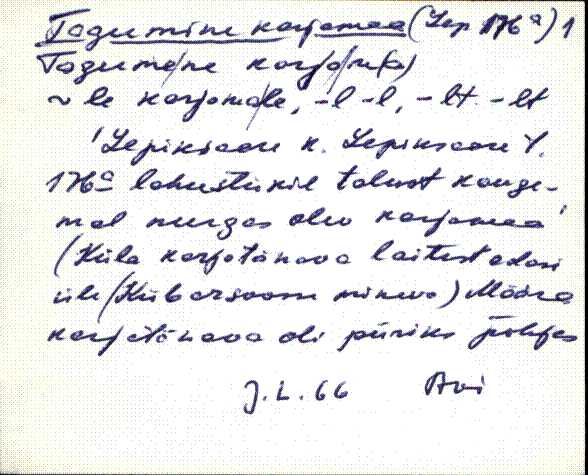 Tagumine karjamaa (Lep 176ª) 1
Tagume/ne karja/m(a)
~ le karjama/le, -l -l, -lt -lt
'Lepiksaare k. Lepiksaare t.
176ª lahustükil talust kauge-
mal nurgas olev karjamaa'
(Küla karjatänava laitest edasi
üle (Kübarsoosse mineva) Määra
karjatänava oli piiriks põhjas
J. L. 66 Avi